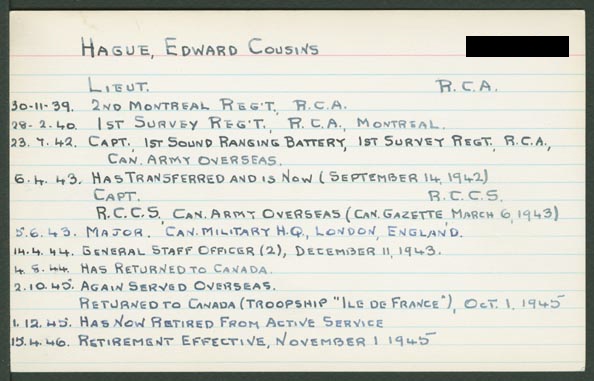 HAGUE, EDWARD COUSINS
LIEUT. R.C.A.
30-11-39. 2ND MONTREAL REG'T, R.C.A.
28-2.40. 1ST SURVEY REG'T., R.C.A., MONTREAL.
23.7.42. CAPT., 1ST SOUND RANGING BATTERY, 1ST SURVEY REGT., R.C.A.,
CAN. ARMY OVERSEAS.
6.4.43. HAS TRANSFERRED AND IS NOW (SEPTEMBER 14, 1942)
CAPT. R.C.C.S.
R.C.C.S., CAN. ARMY OVERSEAS (CAN. GAZETTE, MARCH 6, 1943)
5.6.43. MAJOR. CAN. MILITARY H.Q., LONDON, ENGLAND.
14.4.44. GENERAL STAFF OFFICER (2), DECEMBER 11, 1943.
4.8.44. HAS RETURNED TO CANADA.
2.10.45. AGAIN SERVED OVERSEAS.
RETURNED TO CANADA (TROOPSHIP "ILE DE FRANCE"), OCT. 1, 1945
1.12.45. HAS NOW RETIRED FROM ACTIVE SERVICE
15.4.46. RETIREMENT EFFECTIVE, NOVEMBER 1 1945